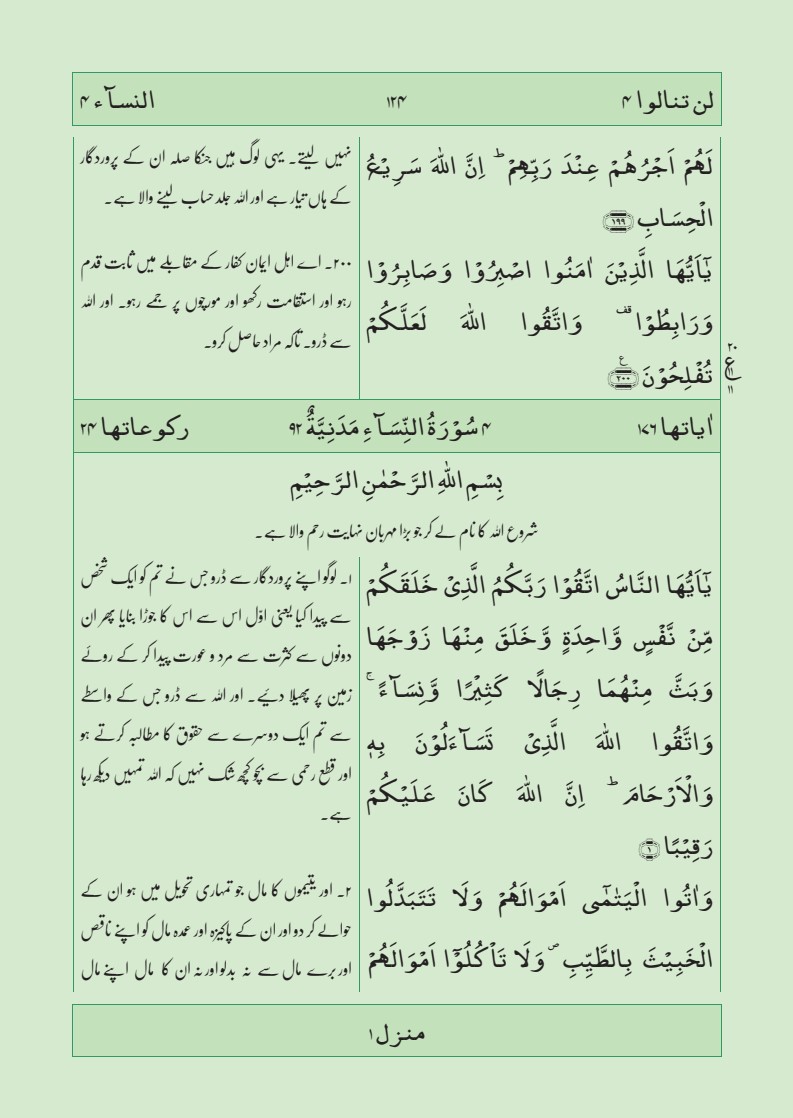 لن تنالوا ۴ ۱۲۴ النسآء ۴
لَهُمۡ اَجۡرُهُمۡ عِنۡدَ رَبِّهِمۡ ؕ اِنَّ اللّٰهَ سَرِيۡعُ
الۡحِسَابِ ﴿۱۹۹﴾
يٰۤاَيُّهَا الَّذِيۡنَ اٰمَنُوا اصۡبِرُوۡا وَصَابِرُوۡا
وَرَابِطُوۡا ۛ وَاتَّقُوا اللّٰهَ لَعَلَّكُمۡ
تُفۡلِحُوۡنَ ﴿۲۰۰﴾ ع
۲۰
ع
۱۱
۱۱
نہیں لیتے۔ یہی لوگ ہیں جنکا صلہ ان کے پروردگار
کے ہاں تیار ہے اور اللہ جلد حساب لینے والا ہے۔
۲۰۰۔ اے اہل ایمان کفار کے مقابلے میں ثابت قدم
رہو اور استقامت رکھو اور مورچوں پر جمے رہو۔ اور اللہ
سے ڈرو۔ تاکہ مراد حاصل کرو۔
اٰیاتها ۱۷۶ ۴ سُوۡرَةُ النِّسَآءِ مَدَنِيَّةٌ ۹۲ رکوعاتها ۲۴
بِسۡمِ اللّٰهِ الرَّحۡمٰنِ الرَّحِيۡمِ
شروع اللہ کا نام لے کر جو بڑا مہربان نہایت رحم والا ہے۔
يٰۤاَيُّهَا النَّاسُ اتَّقُوۡا رَبَّكُمُ الَّذِىۡ خَلَقَكُمۡ
مِّنۡ نَّفۡسٍ وَّاحِدَةٍ وَّخَلَقَ مِنۡهَا زَوۡجَهَا
وَبَثَّ مِنۡهُمَا رِجَالًا كَثِيۡرًا وَّنِسَآءً ۚ
وَاتَّقُوا اللّٰهَ الَّذِىۡ تَسَآءَلُوۡنَ بِهٖ
وَالۡاَرۡحَامَ ؕ اِنَّ اللّٰهَ كَانَ عَلَيۡكُمۡ
رَقِيۡبًا ﴿۱﴾
وَاٰتُوا الۡيَتٰمٰٓى اَمۡوَالَهُمۡ وَلَا تَتَبَدَّلُوا
الۡخَبِيۡثَ بِالطَّيِّبِ ۖ وَلَا تَاۡكُلُوۡۤا اَمۡوَالَهُمۡ
۱۔ لوگو اپنے پروردگار سے ڈرو جس نے تم کو ایک شخص
سے پیدا کیا یعنی اوّل اس سے اس کا جوڑا بنایا پھر ان
دونوں سے کثرت سے مرد و عورت پیدا کر کے روئے
زمین پر پھیلا دئیے۔ اور اللہ سے ڈرو جس کے واسطے
سے تم ایک دوسرے سے حقوق کا مطالبہ کرتے ہو
اور قطع رحمی سے بچو کچھ شک نہیں کہ اللہ تمہیں دیکھ رہا
ہے۔
۲۔ اور یتیموں کا مال جو تمہاری تحویل میں ہو ان کے
حوالے کر دو اور ان کے پاکیزہ اور عمدہ مال کو اپنے ناقص
اور برے مال سے نہ بدلو اور نہ ان کا مال اپنے مال
منزل ۱